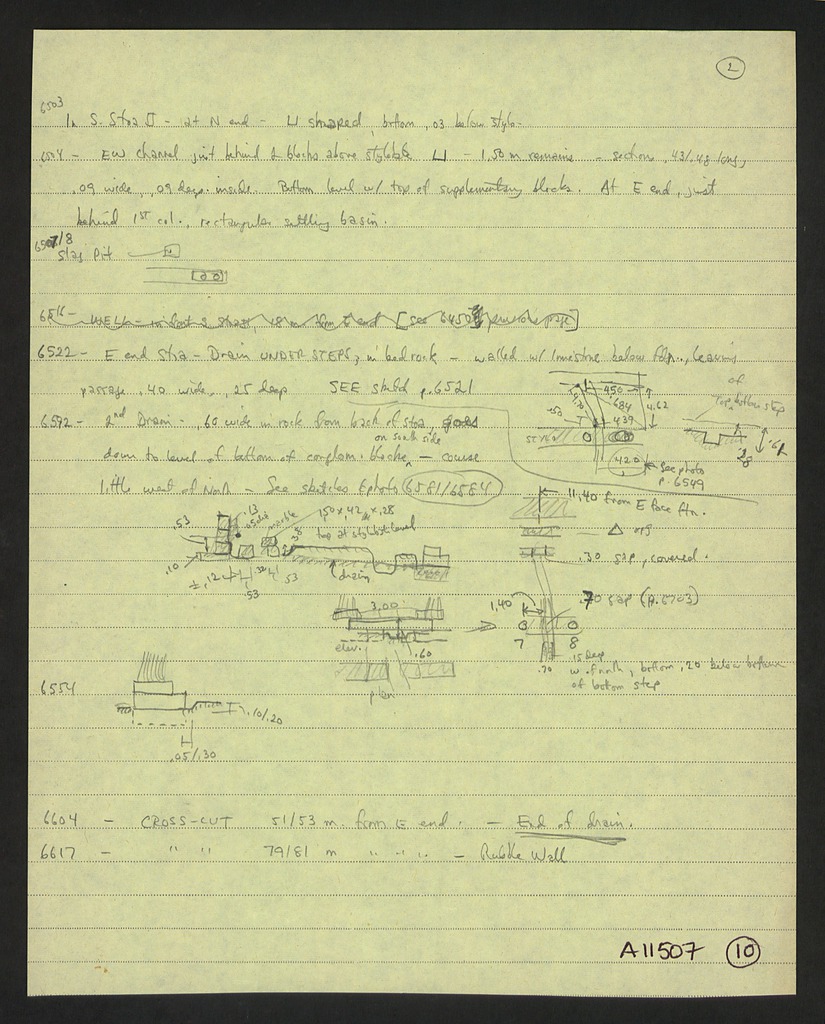 2
6503
In S. Stoa II - at N end - U shaped, bottom .03 below stylo-
6504 - EW channel just behind & blocks above stylobate U - 1.50 m remains - sections .43/.48 long,
.09 wide, .09 deep inside. Bottom level w/ top of supplementary blocks. At E end, just
behind 1st col., rectangular settling basin.
6507/8
Slag Pit
6516 - WELL - [see 6450
6522 - E end Stoa - Drain UNDER STEPS, in bedrock - walled w/ limestone below fdn., leaving
passage .40 wide, .25 deep SEE sketch p. 6521
6592 - 2nd Drain - .60 wide in rock from back of stoa, goes
down to level of bottom of conglom. blocks on south side - course
little west of North - See sketches & photos 6581/6584
450
.684
4.62
439
420
See photo
p. 6549
of
Top bottom step
.28
11.40 from E face ftn.
.30 gap, covered.
.70 gap (p. 6703)
1.40
7 8
.15 Deep
.70
w. of north, bottom .20 below bottom
of bottom step
.53
.13
marble
1.50 x .42 x .28
top at stylobate level
.38
.10
± .12
.32
.53
.53
drain
3.00
elev.
.60
plan
6554
.10/.20
.05/.30
6604 - CROSS-CUT 51/53 m. from E end. - End of drain.
6617 - " " 79/81 m " " " - Rubble Wall
A11507 10